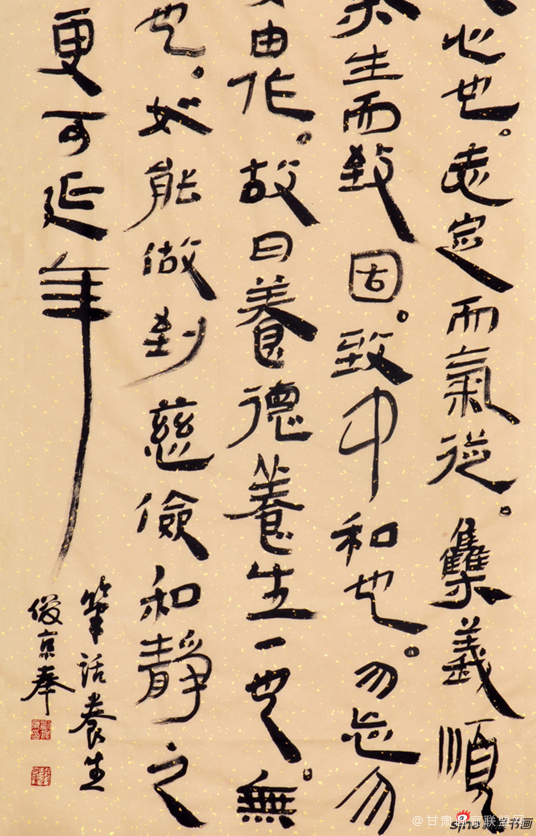 心也。志定而氣從。集義順
生而固。致中和也。勿忘勿
由作。故曰養德養生一也。無
也。如能做到慈儉和靜之
更可延年
筆話養生
俊京奉